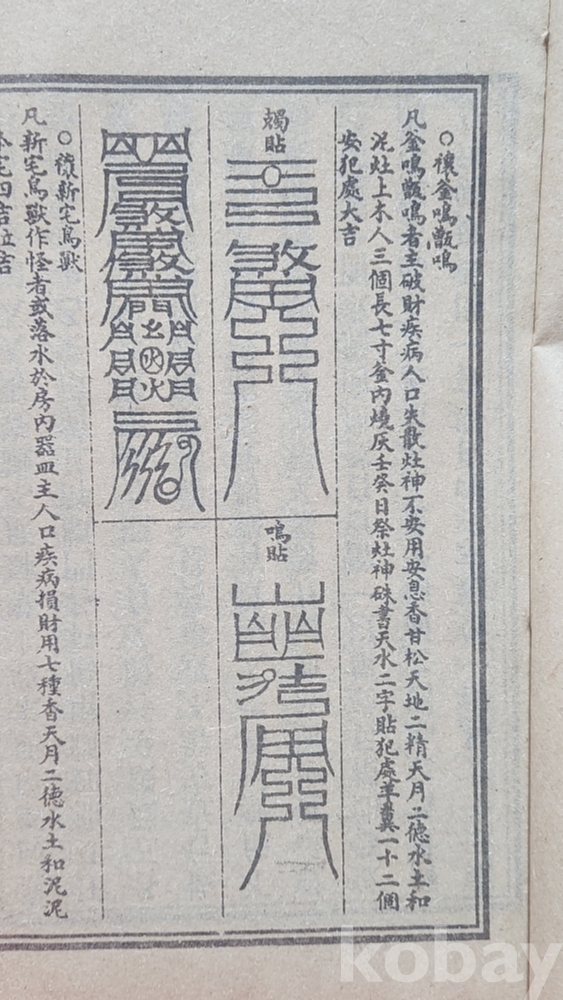 ○禳釜鳴甑鳴
凡釜鳴甑鳴者主破財疾病人口失散灶神不安用安息香甘松天地二精天月二德水土和
泥灶上木人三個長七寸釜內燒灰壬癸日祭灶神硃書天水二字貼犯處羊糞一十二個
安犯處大吉
貼
鳴貼
○禳新宅鳥獸
凡新宅鳥獸作怪者或落水於房內器皿主人口疾病損財用七種香天月二德水土和泥泥
kobay